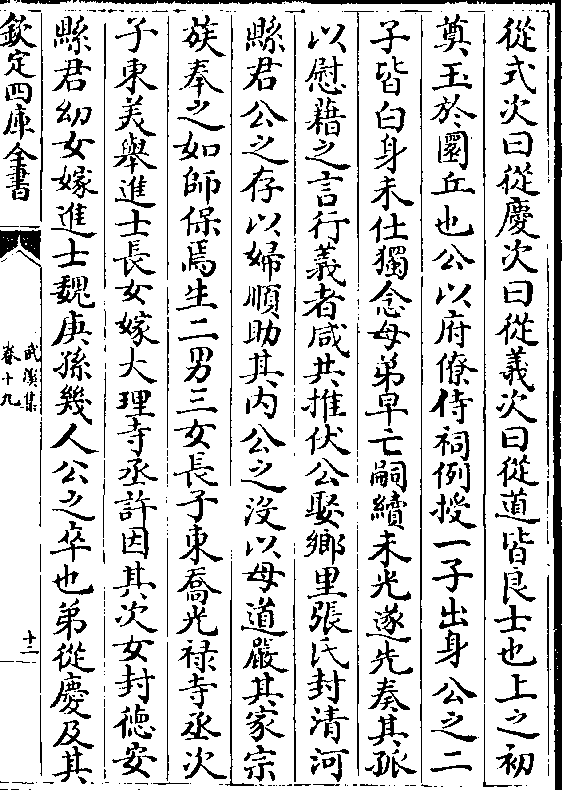 從式次曰從慶次曰從義次曰從道皆良士也上之初
奠玉於圜丘也公以府僚侍祠例授一子出身公之二
子皆白身未仕獨念母弟早亡嗣續未光遂先奏其孤
以慰藉之言行義者咸共推伏公娶鄉里張氏封清河
縣君公之存以婦順助其内公之沒以母道嚴其家宗
族奉之如師保焉生二男三女長子東喬光禄寺丞次
子東美舉進士長女嫁大理寺丞許因其次女封德安
縣君幼女嫁進士魏庾孫幾人公之卒也弟從慶及其
欽定四庫全書
武溪集
卷十九
十二